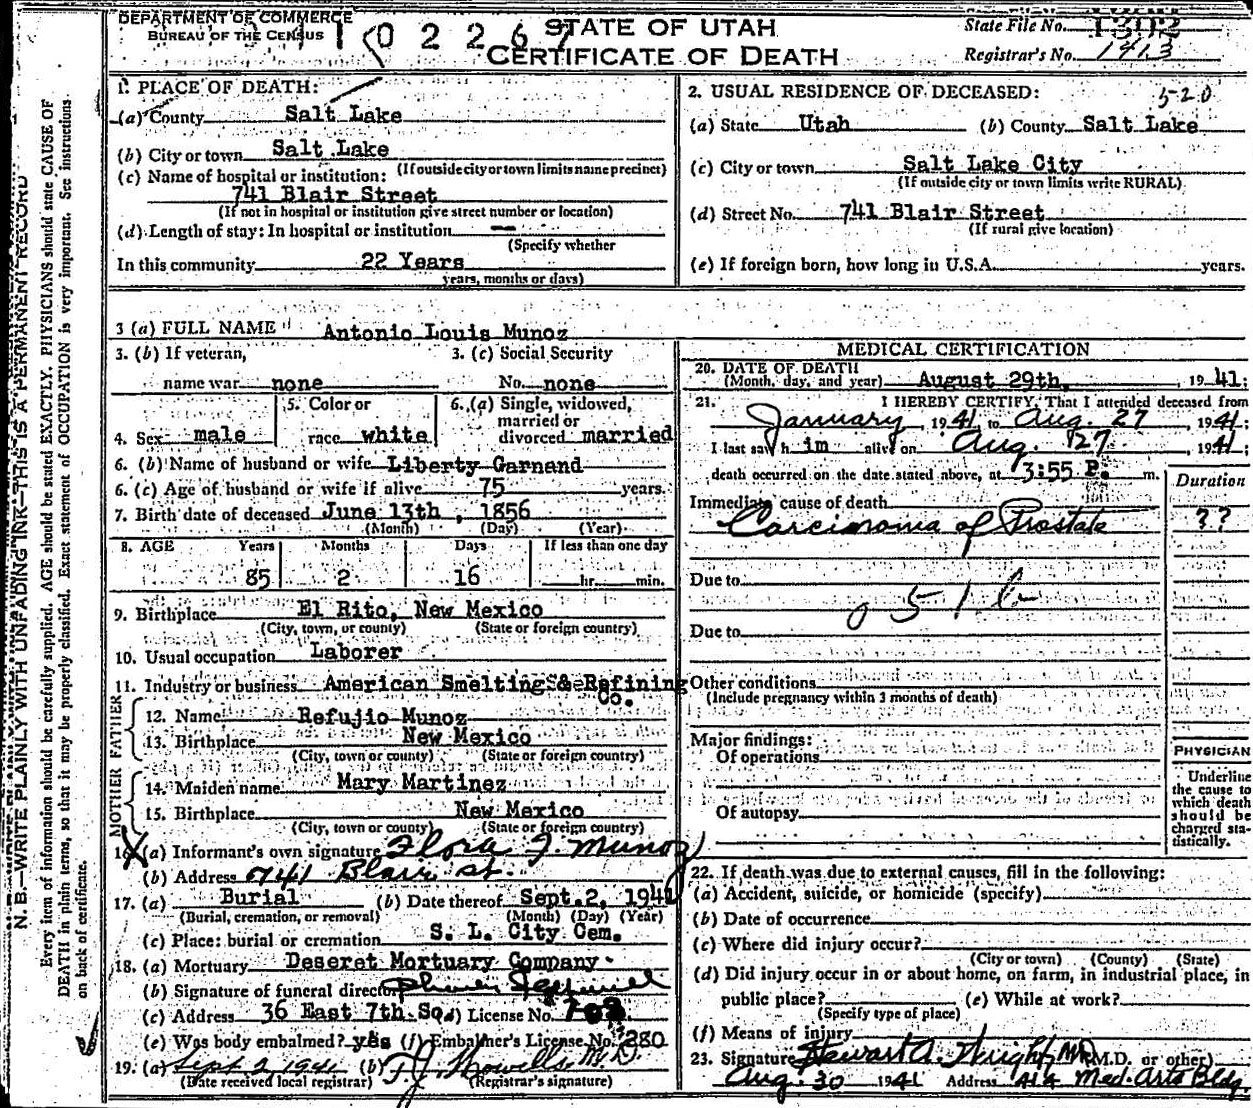 DEPARTMENT OF COMMERCE
BUREAU OF THE CENSUS
0 2 2 6 7
STATE OF UTAH
CERTIFICATE OF DEATH
State File No. 1302
Registrar's No. 1413
N. B.—WRITE PLAINLY WITH UNFADING INK—THIS IS A PERMANENT RECORD
Every item of information should be carefully supplied. AGE should be stated EXACTLY. PHYSICIANS should state CAUSE OF
DEATH in plain terms, so that it may be properly classified. Exact statement of OCCUPATION is very important. See instructions
on back of certificate.
1. PLACE OF DEATH:
(a) County Salt Lake
(b) City or town Salt Lake
(If outside city or town limits name precinct)
(c) Name of hospital or institution:
741 Blair Street
(If not in hospital or institution give street number or location)
(d) Length of stay: In hospital or institution —
(Specify whether
In this community 22 Years
years, months or days)
2. USUAL RESIDENCE OF DECEASED: 520
(a) State Utah (b) County Salt Lake
(c) City or town Salt Lake City
(If outside city or town limits write RURAL)
(d) Street No. 741 Blair Street
(If rural give location)
(e) If foreign born, how long in U.S.A. years.
3 (a) FULL NAME Antonio Louis Munoz
3. (b) If veteran, 3. (c) Social Security
name war none No. none
4. Sex male 5. Color or race white 6. (a) Single, widowed, married or divorced married
6. (b) Name of husband or wife Liberty Garnand
6. (c) Age of husband or wife if alive 75 years.
7. Birth date of deceased June 13th, 1856
(Month) (Day) (Year)
8. AGE Years Months Days If less than one day
85 2 16 hr. min.
9. Birthplace El Rito, New Mexico
(City, town, or county) (State or foreign country)
10. Usual occupation Laborer
11. Industry or business American Smelting & Refining Co.
FATHER
12. Name Refujio Munoz
13. Birthplace New Mexico
(City, town or county) (State or foreign country)
MOTHER
14. Maiden name Mary Martinez
15. Birthplace New Mexico
(City, town or county) (State or foreign country)
16. (a) Informant's own signature Flora J. Munoz
(b) Address 741 Blair St.
17. (a) Burial (b) Date thereof Sept. 2, 1941
(Burial, cremation, or removal) (Month) (Day) (Year)
(c) Place: burial or cremation S. L. City Cem.
18. (a) Mortuary Deseret Mortuary Company
(b) Signature of funeral director
(c) Address 36 East 7th So. (d) License No.
(e) Was body embalmed? yes (f) Embalmer's License No. 280
19. (a) Sept 2 1941 (b) T. J. Howells M.D.
(Date received local registrar) (Registrar's signature)
MEDICAL CERTIFICATION
20. DATE OF DEATH
(Month, day, and year) August 29th, 1941;
21. I HEREBY CERTIFY, That I attended deceased from
January, 1941 to Aug. 27, 1941;
I last saw h im alive on Aug. 27, 1941;
death occurred on the date stated above, at 3:55 P. m.
Duration
Immediate cause of death
Carcinoma of Prostate ??
Due to
051b
Due to
Other conditions
(Include pregnancy within 3 months of death)
Major findings:
Of operations
Of autopsy
PHYSICIAN
Underline
the cause to
which death
should be
charged sta-
tistically.
22. If death was due to external causes, fill in the following:
(a) Accident, suicide, or homicide (specify)
(b) Date of occurrence
(c) Where did injury occur?
(City or town) (County) (State)
(d) Did injury occur in or about home, on farm, in industrial place, in
public place? (e) While at work?
(Specify type of place)
(f) Means of injury
23. Signature Stewart A. Wright, M.D. (M.D. or other)
Aug. 30 1941 Address 414 Med. Arts Bldg.